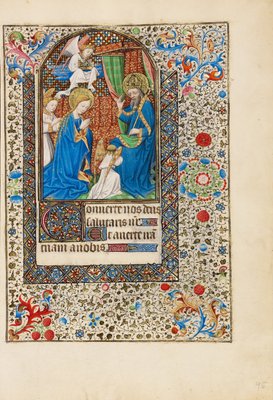 Conuerte nos deus
salutaris nr̄
Et auerte irā
tuam a nobis